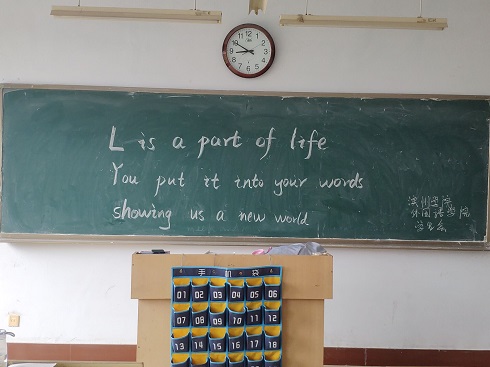 L is a part of life
You put it into your words
showing us a new world
滨州学院
外国语学院
学生会
手机袋
01 02 03 04 05 06
07 08 09 10 11 12
13 14 15 16 17 18